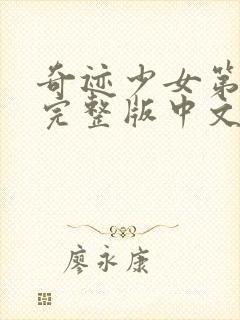 奇迹少女第
完整版中文
廖永康